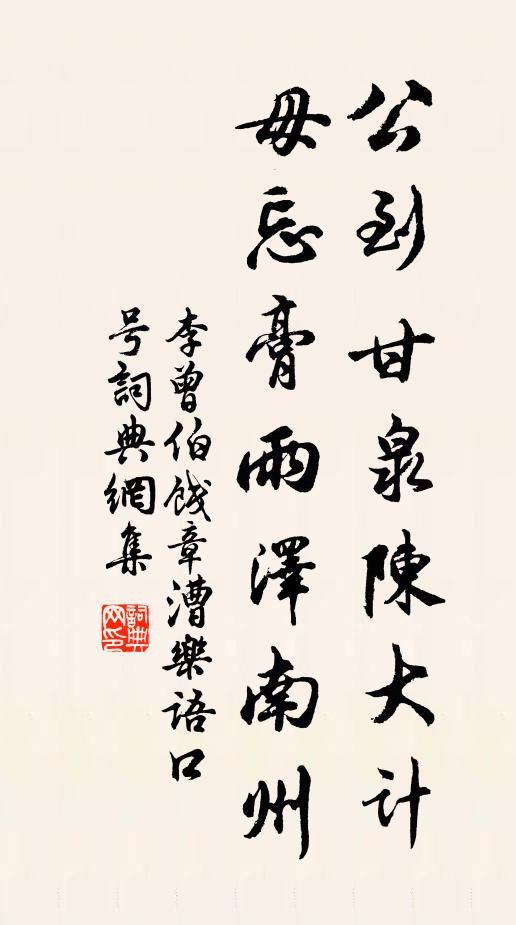 公到甘泉陳大计
毋忘膏雨澤南州
李曾伯餞章漕樂語口
号詞典網集
詞典
网印